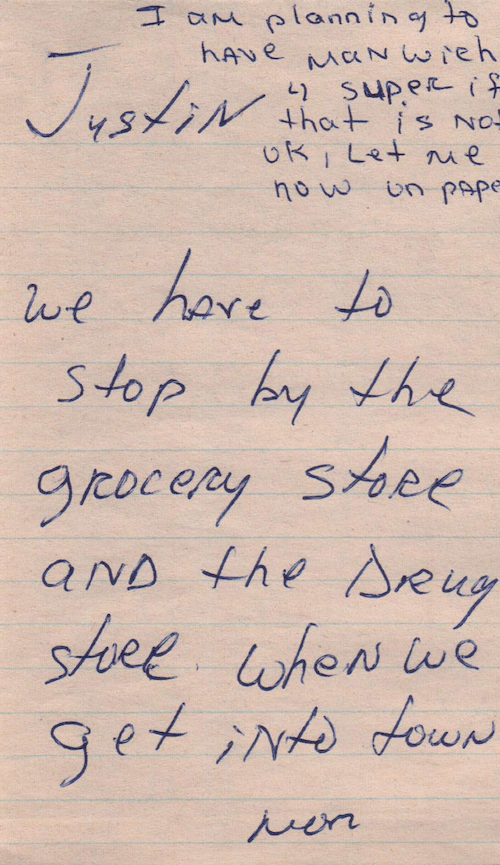 I am planning to
have manwich
4 super if
Justin that is not
ok, Let me
now on pape
we have to
stop by the
grocery store
and the Drug
store when we
get into town
mom